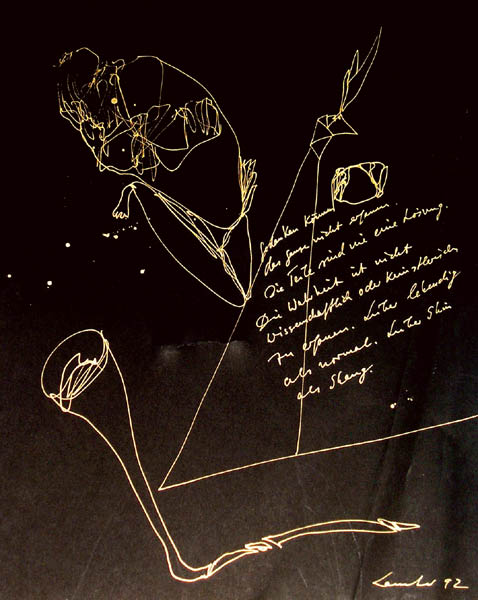 Gedanken können
das ganze nicht erfassen.
Die Teile sind nie eine Lösung.
Die Wahrheit ist nicht
wissenschaftlich oder künstlerisch
zu erfassen. Lieber lebendig
als normal. Lieber
als
92